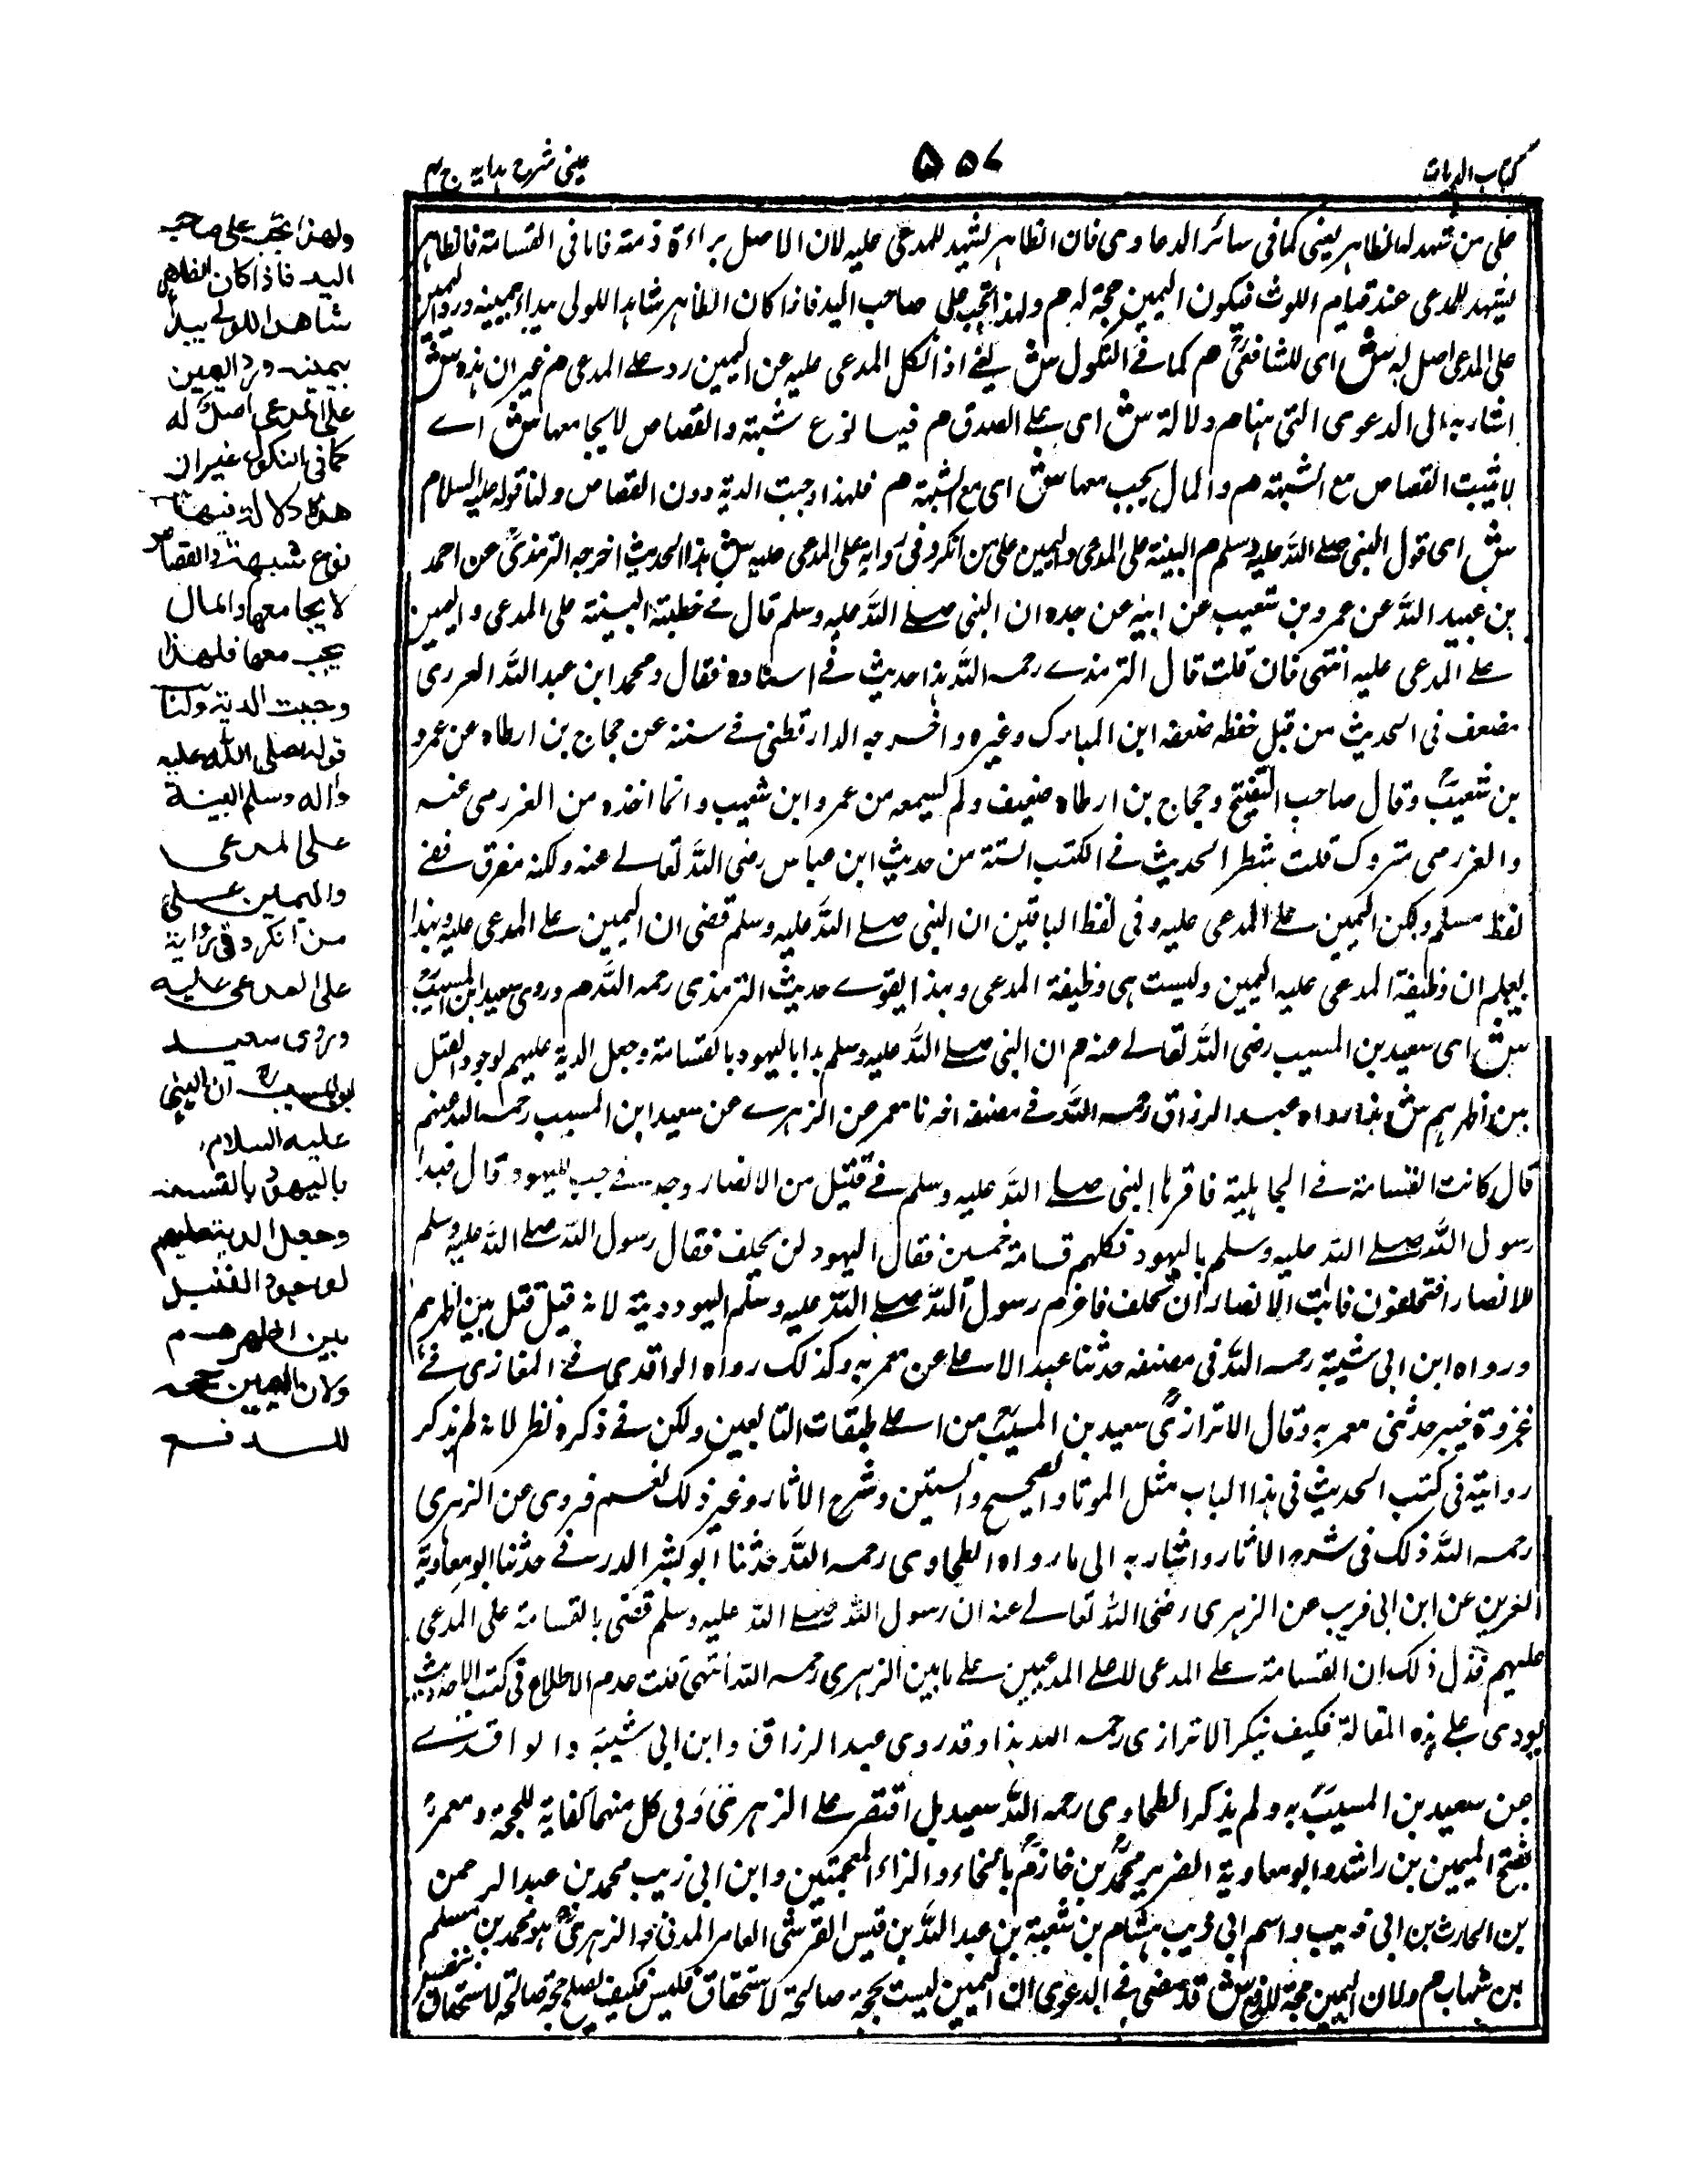 كتاب الديات
٥٥٧
عينى شرح هدايه ج ٤
على من تشهد له الظاهر يعنى كما فى سائر الدعاوى فان الظاهر يشهد للمدعى عليه لان الاصل براءة ذمته فاما فى القسامة فالظاهر
يشهد للمدعى عند قيام اللوث فيكون اليمين حجة له م ولهذا تجب على صاحب اليد فاذا كان الظاهر شاهدا للولى يبدأ بيمينه ورد اليمين
على المدعى اصل له ش اى للشافعى م كما فى النكول ش يعنى اذا نكل المدعى عليه عن اليمين رد على المدعى م غير ان هذه ش
اشار به الى الدعوى التى هنا م دلالة ش اى على الصدق م فيها نوع شبهة والقصاص لا يجامعها ش اے
لا يثبت القصاص مع الشبهة م والمال يجب معها ش اى مع الشبهة م فلهذا وجبت الدية دون القصاص ولنا قوله عليه السلام
ش اى قول النبى صلے اللہ عليه وسلم م البينة على المدعى واليمين على من انكر وفى رواية على المدعى عليه ش هذا الحديث اخرجه الترمذى عن احمد
بن عبيد اللہ عن عمرو بن شعيب عن ابيه عن جده ان النبى صلے اللہ عليه وسلم قال فے خطبته البينة على المدعى واليمين
علے المدعى عليه انتهى فان قلت قال الترمذے رحمه اللہ هذا حديث فے اسناده فقال ومحمد ابن عبد اللہ العررى
مضعف فى الحديث من قبل حفظه ضعفه ابن المبارك وغيره واخرجه الدارقطنى فے سننه عن حجاج بن ارطاه عن عمرو
بن شعيب وقال صاحب التنقيح وحجاج بن ارطاه ضعيف ولم يسمعه من عمرو ابن شعيب وانما اخذه من العزرمى عنه
والعزرمى متروك قلت شطر الحديث فے الكتب الستة من حديث ابن عباس رضى اللہ تعالے عنه ولكنه مفرق ففے
لفظ مسلم ولكن اليمين علے المدعى عليه وفى لفظ الباقين ان النبى صلے اللہ عليه وسلم قضى ان اليمين علے المدعى عليه وبهذا
يعلم ان وظيفة المدعى عليه اليمين وليست هى وظيفة المدعى وهذا يقوے حديث الترمذى رحمه اللہ م وروى سعيد ابن المسيب
ش اى سعيد بن المسيب رضى اللہ تعالے عنه م ان النبى صلے اللہ عليه وسلم بدا باليهود بالقسامة وجعل الدية عليهم لوجود القتل
بين اظهرهم ش هذا رواه عبد الرزاق رحمه اللہ فے مصنفه اخبرنا معمر عن الزهرے عن سعيد ابن المسيب رحمه اللہ عنهم
قال كانت القسامة فے الجاهلية فاقرها النبى صلے اللہ عليه وسلم فے قتيل من الانصار وجد فے جب لليهود قال فبدا
رسول اللہ صلے اللہ عليه وسلم باليهود فكلهم قسامة خمسين فقال اليهود لن يحلف فقال رسول اللہ صلے اللہ عليه وسلم
للانصار افتحلفون فابت الانصار ان تحلف فاغرم رسول اللہ صلے اللہ عليه وسلم اليهود دية لانه قتيل قتل بين اظهرهم
ورواه ابن ابى شيبة رحمه اللہ فى مصنفه حدثنا عبد الاعلے عن معمر به وكذلك رواه الواقدى فے المغازى فے
غزوة خيبر حدثنى معمر به وقال الاترازى سعيد بن المسيب من اعلے طبقات التابعين ولكن فے ذكره نظر لانه لم يذكر
روايته فى كتب الحديث فى هذا الباب مثل الموتا والصحيح والسنن وشرح الاثار وغير ذلك نعم فروى عن الزهرى
رحمه اللہ ذلك فى شرح الاثار واشار به الى ما رواه الطحاوى رحمه اللہ حدثنا ابو بشر الدرقے حدثنا ابو معاوية
الضرير عن ابن ابى ذيب عن الزهرى رضى اللہ تعالے عنه ان رسول اللہ صلے اللہ عليه وسلم قضى بالقسامة على المدعى
عليهم فدل ذلك ان القسامة علے المدعى لا علے المدعيين علے ما بين الزهرى رحمه اللہ انتهى قلت عدم الاطلاع فى كتب الاحاديث
يودى علے هذه المقالة فكيف ينكر الاترازى رحمه اللہ هذا وقد روى عبد الرزاق وابن ابى شيبة والواقدے
عن سعيد بن المسيب به ولم يذكر الطحاوى رحمه اللہ سعيد بل اقتصر علے الزهرى وفى كل منهما كفاية للحجة ومعمر
بفتح الميمين بن راشد وابو معاوية الضرير محمد بن خازم بالخاء والزاء المعجمتين وابن ابى ذيب محمد بن عبد الرحمن
بن الحارث بن ابى ذيب واسم ابى ذيب هشام بن شعبة بن عبد اللہ بن قيس القرشى العامر المدنى والزهرى هو محمد بن مسلم
بن شهاب م ولان اليمين حجة للدفع ش قد مضى فى الدعوى ان اليمين ليست بحجة صالحة لاستحقاق فليس فكيف يصلح حجة صالحة لاستحقاق
ولهذا تجب على صاحب
اليد فاذا كان الظاهر
شاهدا للولے يبدأ
بيمينه ورد اليمين
على المدعى اصل له
كما فى النكول غير ان
هذه دلالة فيها
نوع شبهة والقصاص
لا يجامعها والمال
يجب معها فلهذا
وجبت الدية ولنا
قوله صلى الله عليه
واله وسلم البينة
على المدعى
واليمين على
من انكر وفى رواية
على المدعى عليه
وروى سعيد
ابن المسيب ان النبى
عليه السلام
باليهود بالقسامة
وجعل الدية عليهم
لوجود القتيل
بين اظهرهم
ولان اليمين حجة
للدفع